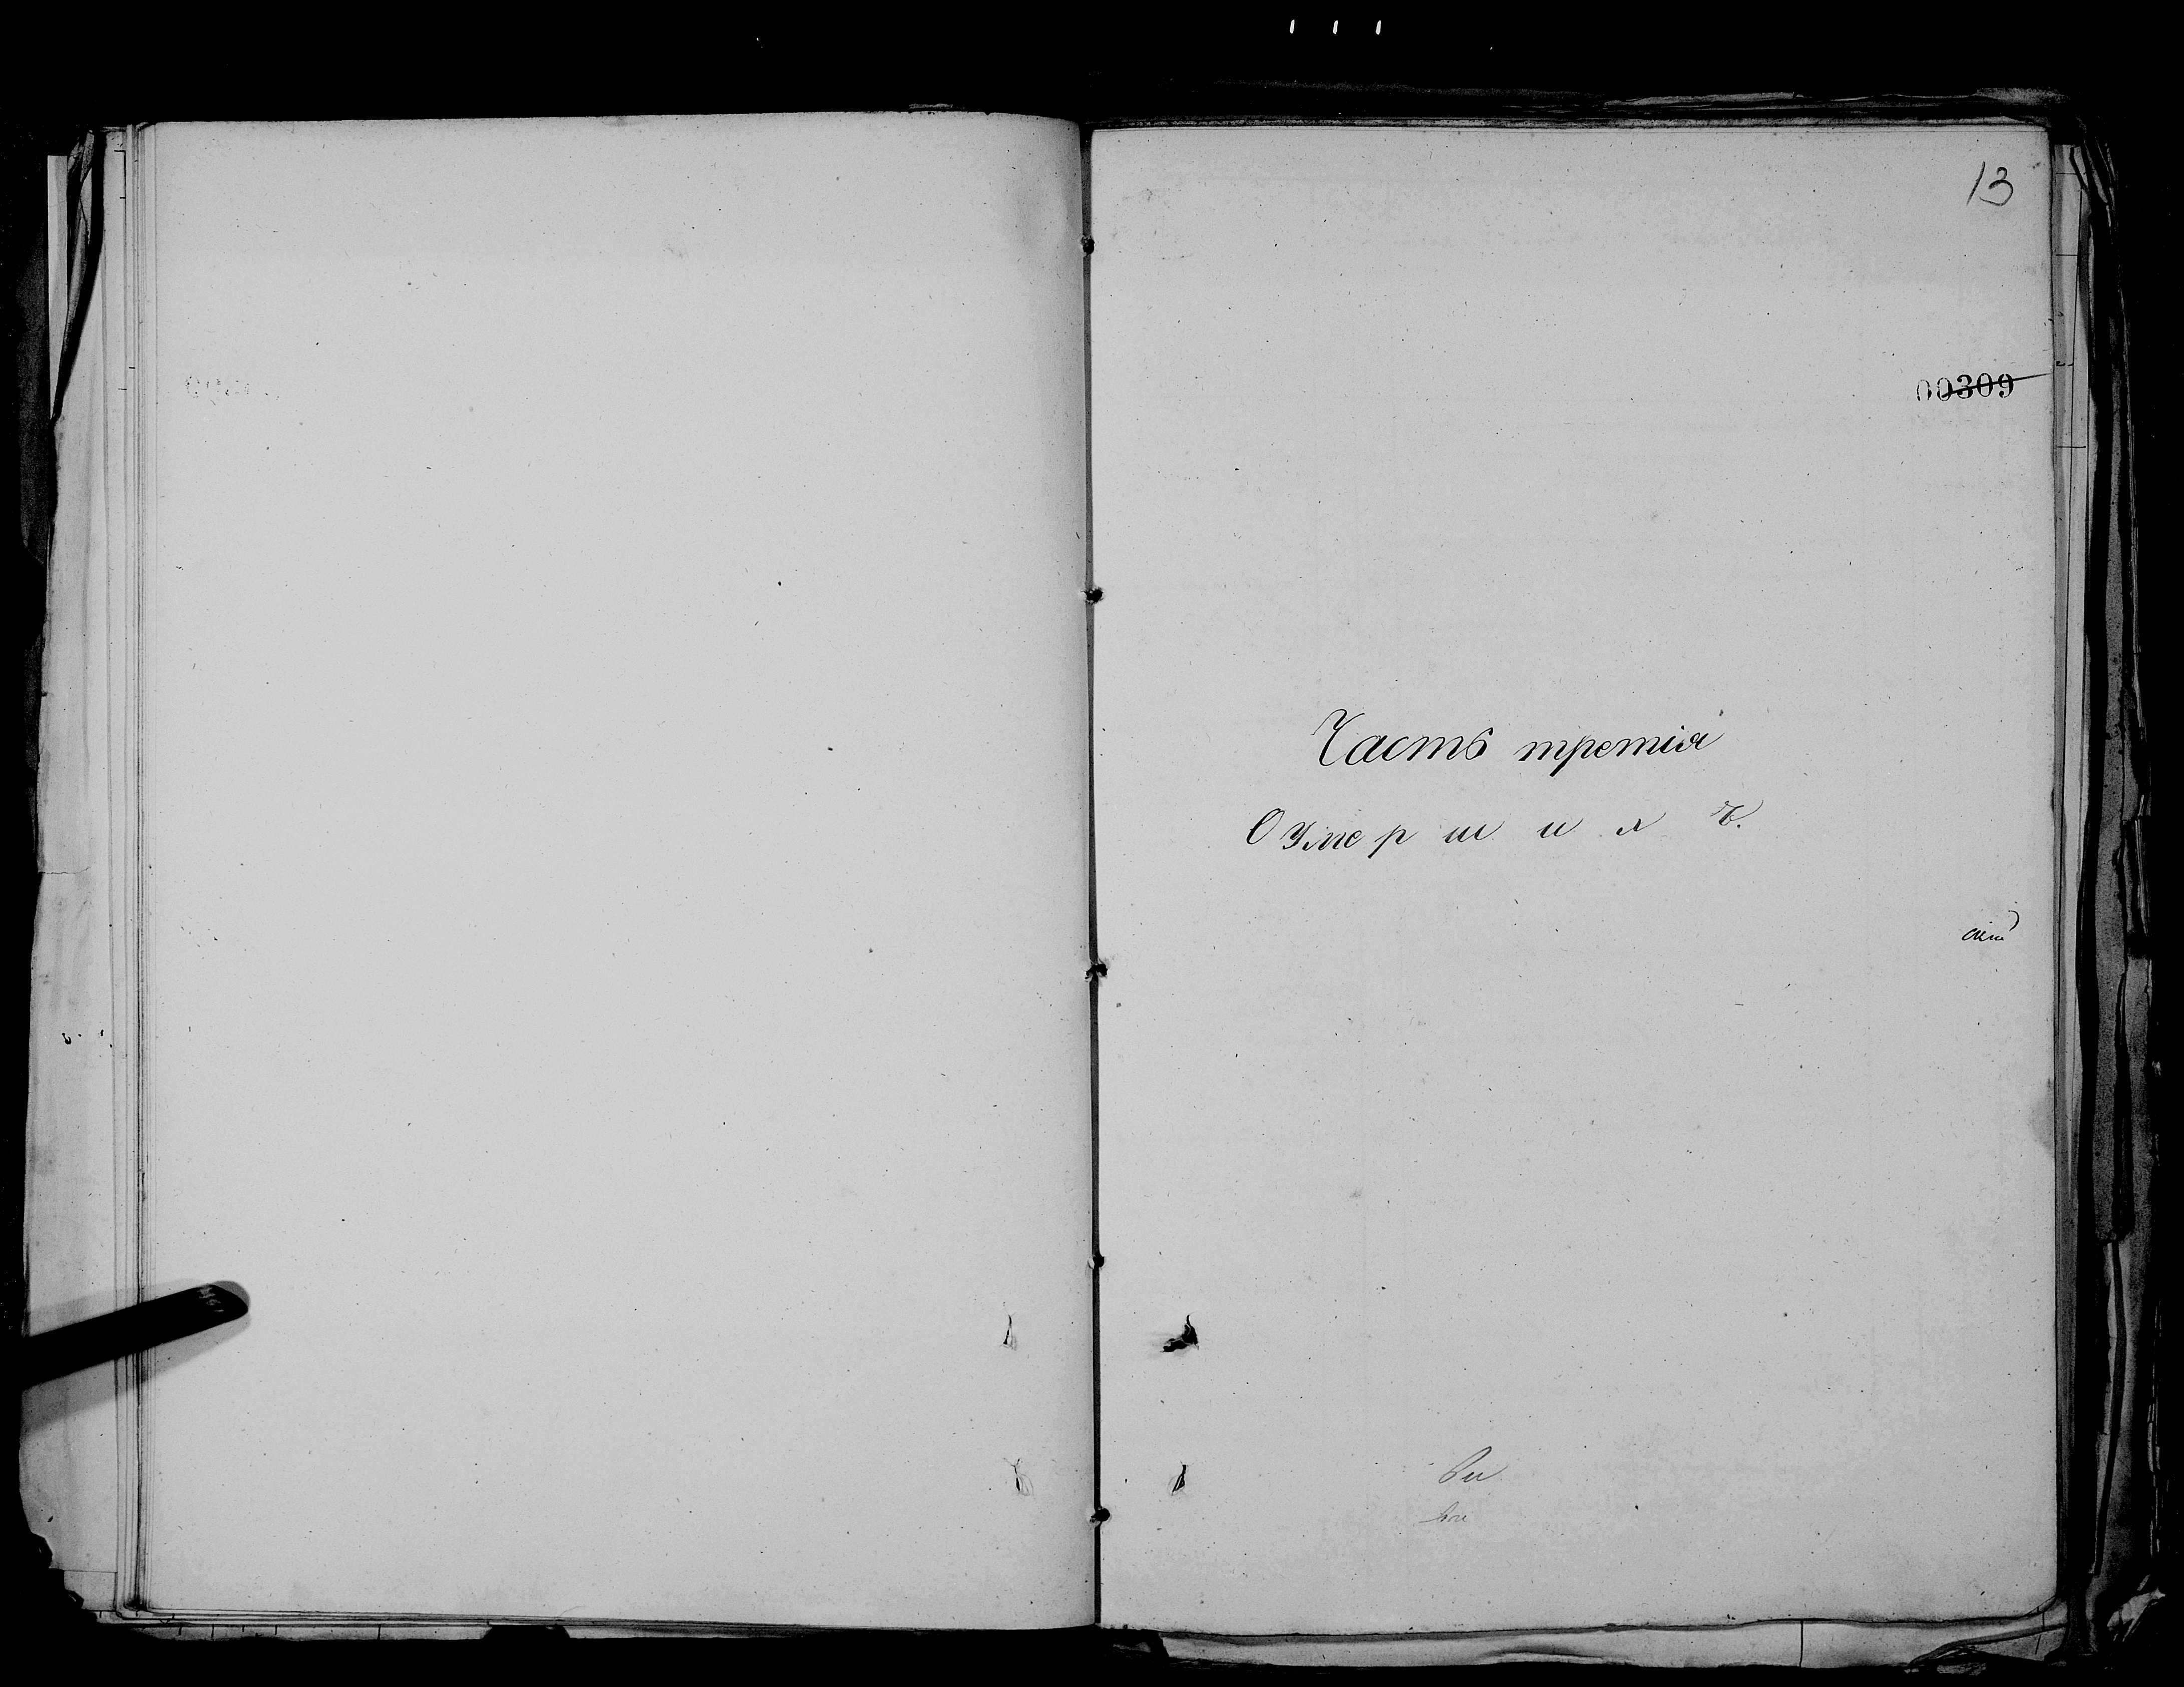 13
00309
Часть третія
О Умершихъ.